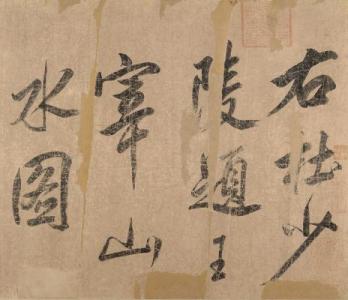 右杜少
陵題王
宰山
水圖